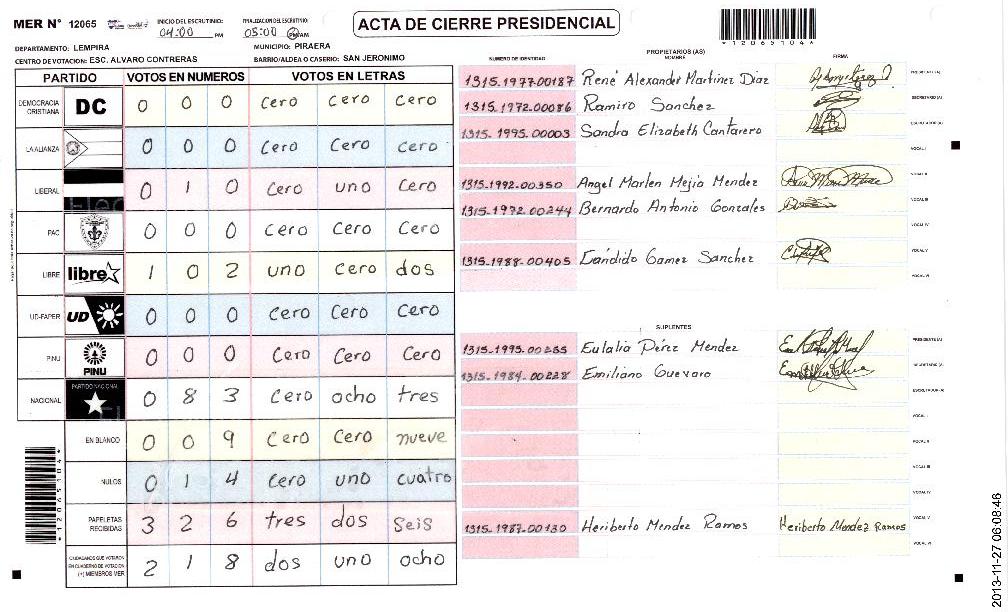 MER Nº 12065
INICIO DEL ESCRUTINIO:
04:00 PM
FINALIZACION DEL ESCRUTINIO:
05:00 PM AM
ACTA DE CIERRE PRESIDENCIAL
*12065104*
DEPARTAMENTO: LEMPIRA
MUNICIPIO: PIRAERA
CENTRO DE VOTACION: ESC. ALVARO CONTRERAS
BARRIO/ALDEA O CASERIO: SAN JERONIMO
PARTIDO VOTOS EN NUMEROS VOTOS EN LETRAS
DEMOCRACIA CRISTIANA DC 0 0 0 Cero Cero Cero
LA ALIANZA 0 0 0 Cero Cero Cero
LIBERAL 0 1 0 Cero uno Cero
PAC 0 0 0 Cero Cero Cero
LIBRE libre 1 0 2 uno Cero dos
UD-FAPER UD 0 0 0 Cero Cero Cero
PINU PINU 0 0 0 Cero Cero Cero
NACIONAL PARTIDO NACIONAL 0 8 3 Cero ocho tres
EN BLANCO 0 0 9 Cero Cero nueve
NULOS 0 1 4 Cero uno cuatro
PAPELETAS RECIBIDAS 3 2 6 tres dos Seis
CIUDADANOS QUE VOTARON EN CUADERNO DE VOTACION (+) MIEMBROS MER 2 1 8 dos uno ocho
*12065104*
NUMERO DE IDENTIDAD PROPIETARIOS (AS) NOMBRE FIRMA
1315-1977-00187 René Alexander Martinez Díaz PRESIDENTE (A)
1315-1972-00086 Ramiro Sanchez SECRETARIO (A)
1315-1995-00003 Sandra Elizabeth Cantarero ESCRUTADOR (A)
VOCAL I
1315-1992-00350 Angel Marlen Mejia Mendez VOCAL II
1315-1972-00244 Bernardo Antonio Gonzales VOCAL III
VOCAL IV
1315-1988-00405 Cándido Gamez Sanchez VOCAL V
VOCAL VI
SUPLENTES
1315-1995-00265 Eulalia Pérez Mendez PRESIDENTE (A)
1315-1984-00228 Emiliano Guevara SECRETARIO (A)
ESCRUTADOR (A)
VOCAL I
VOCAL II
VOCAL III
VOCAL IV
1315-1987-00130 Heriberto Mendez Ramos Heriberto Mendez Ramos VOCAL V
VOCAL VI
2013-11-27 06:08:46